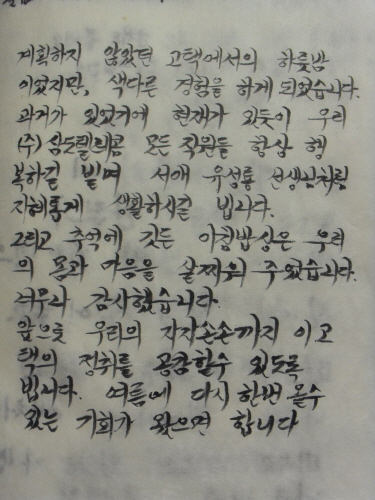 계획하지 않았던 고택에서의 하룻밤
이었지만, 색다른 경험을 하게 되었습니다.
과거가 있었거에 현재가 있듯이 우리
(주)삼도텔리콤 모든 직원들 항상 행
복하길 빌며 서애 유성룡 선생님처럼
지혜롭게 생활하시길 빕니다.
그리고 추억에 깃든 아침밥상은 우리
의 몸과 마음을 살찌워 주었습니다.
너무나 감사했습니다.
앞으로 우리의 자자손손까지 이 고
택의 정취를 공감할수 있도록
빕니다. 여름에 다시 한번 올수
있는 기회가 왔으면 합니다